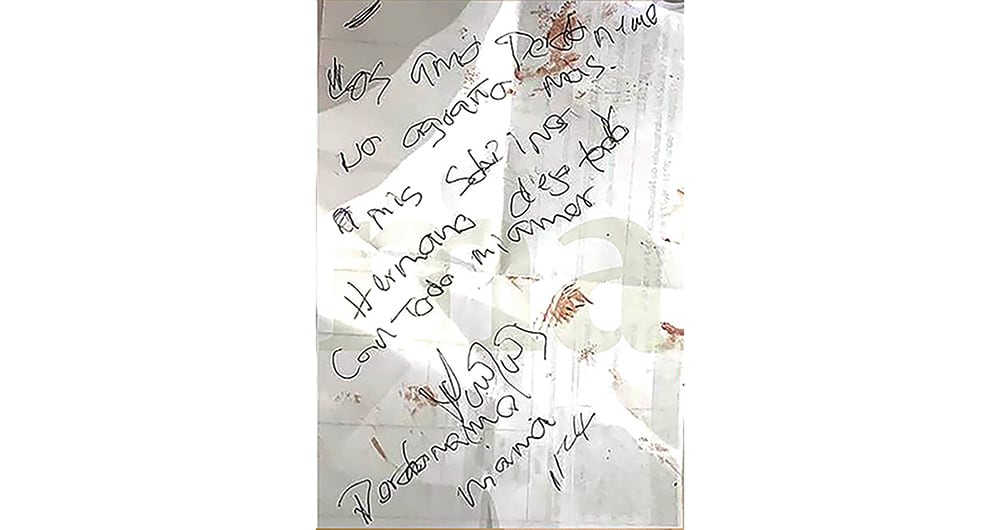 Los amo perdoneme
no aguanto mas.
a mis sobrinos
Hermana dejo todo
Con Todo mi amor
Perdoname
mamá
11-4